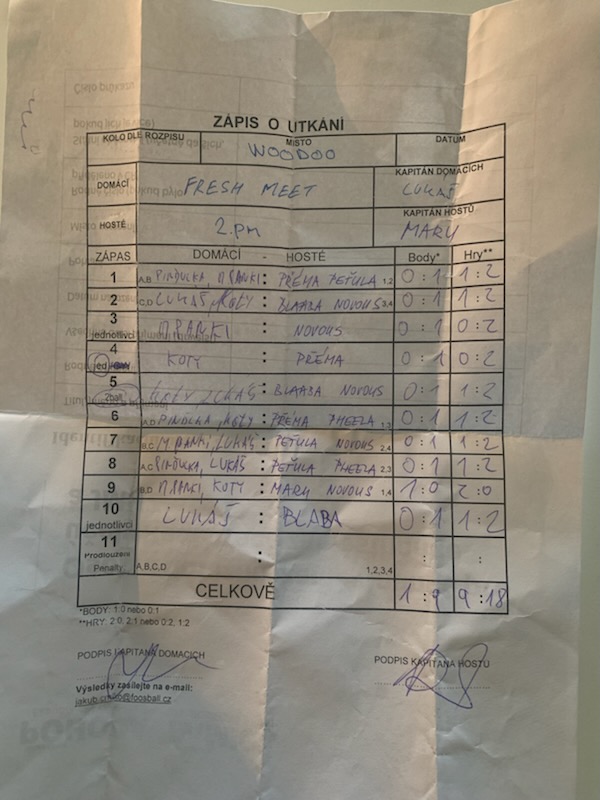 ZÁPIS O UTKÁNÍ
KOLO DLE ROZPISU MÍSTO DATUM
WOODOO
DOMÁCÍ FRESH MEET KAPITÁN DOMÁCÍCH LUKÁŠ
HOSTÉ 2.pm KAPITÁN HOSTŮ MARU
ZÁPAS DOMÁCÍ - HOSTÉ Body* Hry**
1 A,B PINĎULKA, MRANKI : PŘÉMA PEŤULA 1,2 0:1 1:2
2 C,D LUKÁŠ, KOTY : BLAABA NOVOUS 3,4 0:1 1:2
3 jednotlivci MRANKI : NOVOUS 0:1 0:2
4 jed KOTY : PŘÉMA 0:1 0:2
5 2ball KOTY LUKÁŠ : BLAABA NOVOUS 0:1 1:2
6 A,D PINĎULKA, KOTY : PŘÉMA PHEELA 1,3 0:1 1:2
7 B,C MRANKI, LUKÁŠ : PEŤULA NOVOUS 2,4 0:1 1:2
8 A,C PINĎULKA, LUKÁŠ : PEŤULA PHEELA 2,3 0:1 1:2
9 B,D MRANKI, KOTY : MARU NOVOUS 1,4 1:0 2:0
10 jednotlivci LUKÁŠ : BLABA 0:1 1:2
11 Prodloužení Penalty A,B,C,D : 1,2,3,4 : :
CELKOVĚ 1:9 9:18
*BODY: 1:0 nebo 0:1
**HRY: 2:0, 2:1 nebo 0:2, 1:2
PODPIS KAPITÁNA DOMÁCÍCH PODPIS KAPITÁNA HOSTŮ
Výsledky zasílejte na e-mail: